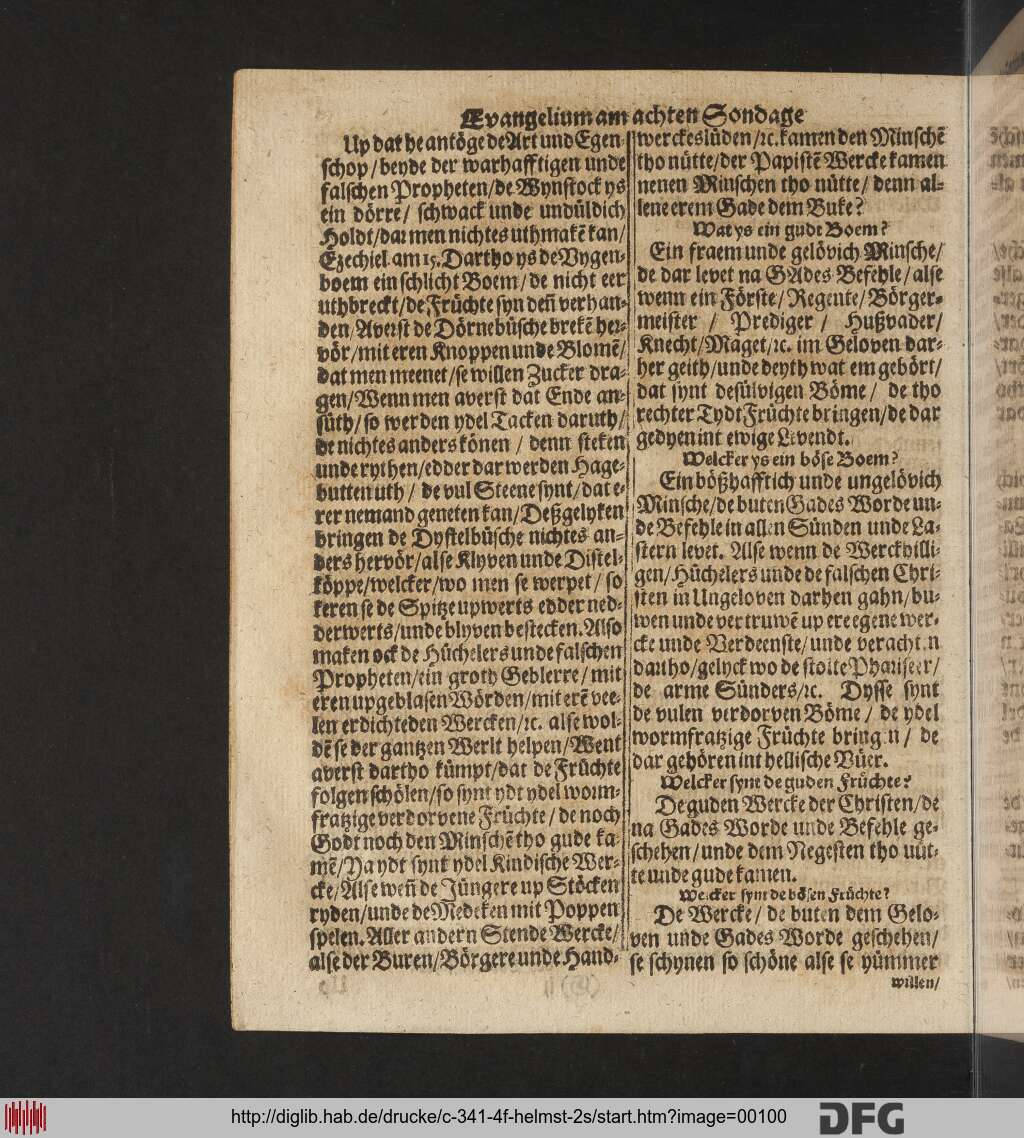 Evangelium am achten Sondage
Up dat he antöge de Art und Egen-
schop / beyde der warhafftigen unde
falschen Propheten / de Wynstock ys
ein dörre / schwack unde undüldich
Holdt / dar men nichtes uthmakē kan /
Ezechiel. am 15. Dartho ys de Vygen-
boem ein schlicht Boem / de nicht eer
uthbreckt / de Früchte syn deñ verhan-
den / Averst de Dörnebüsche brekē her-
vör / mit eren Knoppen unde Blomē /
dat men meenet / se willen Zucker dra-
gen / Wenn men averst dat Ende an-
süth / so werden ydel Tacken daruth /
de nichtes anders könen / denn steken
unde rythen / edder dar werden Hage-
butten uth / de vul Steene synt / dat e-
rer nemand geneten kan / Deßgelyken
bringen de Dystelbüsche nichtes an-
ders hervör / alse Klyven unde Distel-
köppe / welcker / wo men se werpet / so
keren se de Spitze upwerts edder ned-
derwerts / unde blyven bestecken. Also
maken ock de Hüchelers unde falschen
Propheten / ein groth Geblerre / mit
eren upgeblasen Wörden / mit erē vee-
len erdichteden Wercken / ꝛc. alse wol-
dē se der gantzen Werlt helpen / Went
averst dartho kümpt / dat de Früchte
folgen schölen / so synt ydt ydel worm-
fratzige verdorvene Früchte / de noch
Godt noch den Minschē tho gude ka-
mē / Ja ydt synt ydel Kindische Wer-
cke / Alse weñ de Jüngere up Stöcken
ryden / unde de Medeken mit Poppen
spelen. Aller andern Stende Wercke /
alse der Buren / Börgere unde Hand-
werckeslüden / ꝛc. kamen den Minschē
tho nütte / der Papistē Wercke kamen
nenen Minschen tho nütte / denn al-
lene erem Gade dem Buke?
Wat ys ein gudt Boem?
Ein fraem unde gelövich Minsche /
de dar levet na GAdes Befehle / alse
wenn ein Förste / Regente / Börger-
meister / Prediger / Hußvader /
Knecht / Maget / ꝛc. im Geloven dar-
her geith / unde deyth wat em gebört /
dat synt desülvigen Böme / de tho
rechter Tydt Früchte bringen / de dar
gedyen int ewige Levendt.
Welcker ys ein böse Boem?
Ein bößhafftich unde ungelövich
Minsche / de buten Gades Worde un-
de Befehle in allen Sünden unde La-
stern levet. Alse wenn de Werckhilli-
gen / Hüchelers unde de falschen Chri-
sten in Ungeloven darhen gahn / bu-
wen unde vertruwē up ere egene wer-
cke unde Verdeenste / unde verachten
dartho / gelyck wo de stolte Phariseer /
de arme Sünders / ꝛc. Dysse synt
de vulen verdorven Böme / de ydel
wormfratzige Früchte bringen / de
dar gehören int hellische Vüer.
Welcker synt de guden Früchte?
De guden Wercke der Christen / de
na Gades Worde unde Befehle ge-
schehen / unde dem Negesten tho nüt-
te unde gude kamen.
Welcker synt de bösen Früchte?
De Wercke / de buten dem Gelo-
ven unde Gades Worde geschehen /
se schynen so schöne alse se yümmer
willen /
http://diglib.hab.de/drucke/c-341-4f-helmst-2s/start.htm?image=00100
DFG